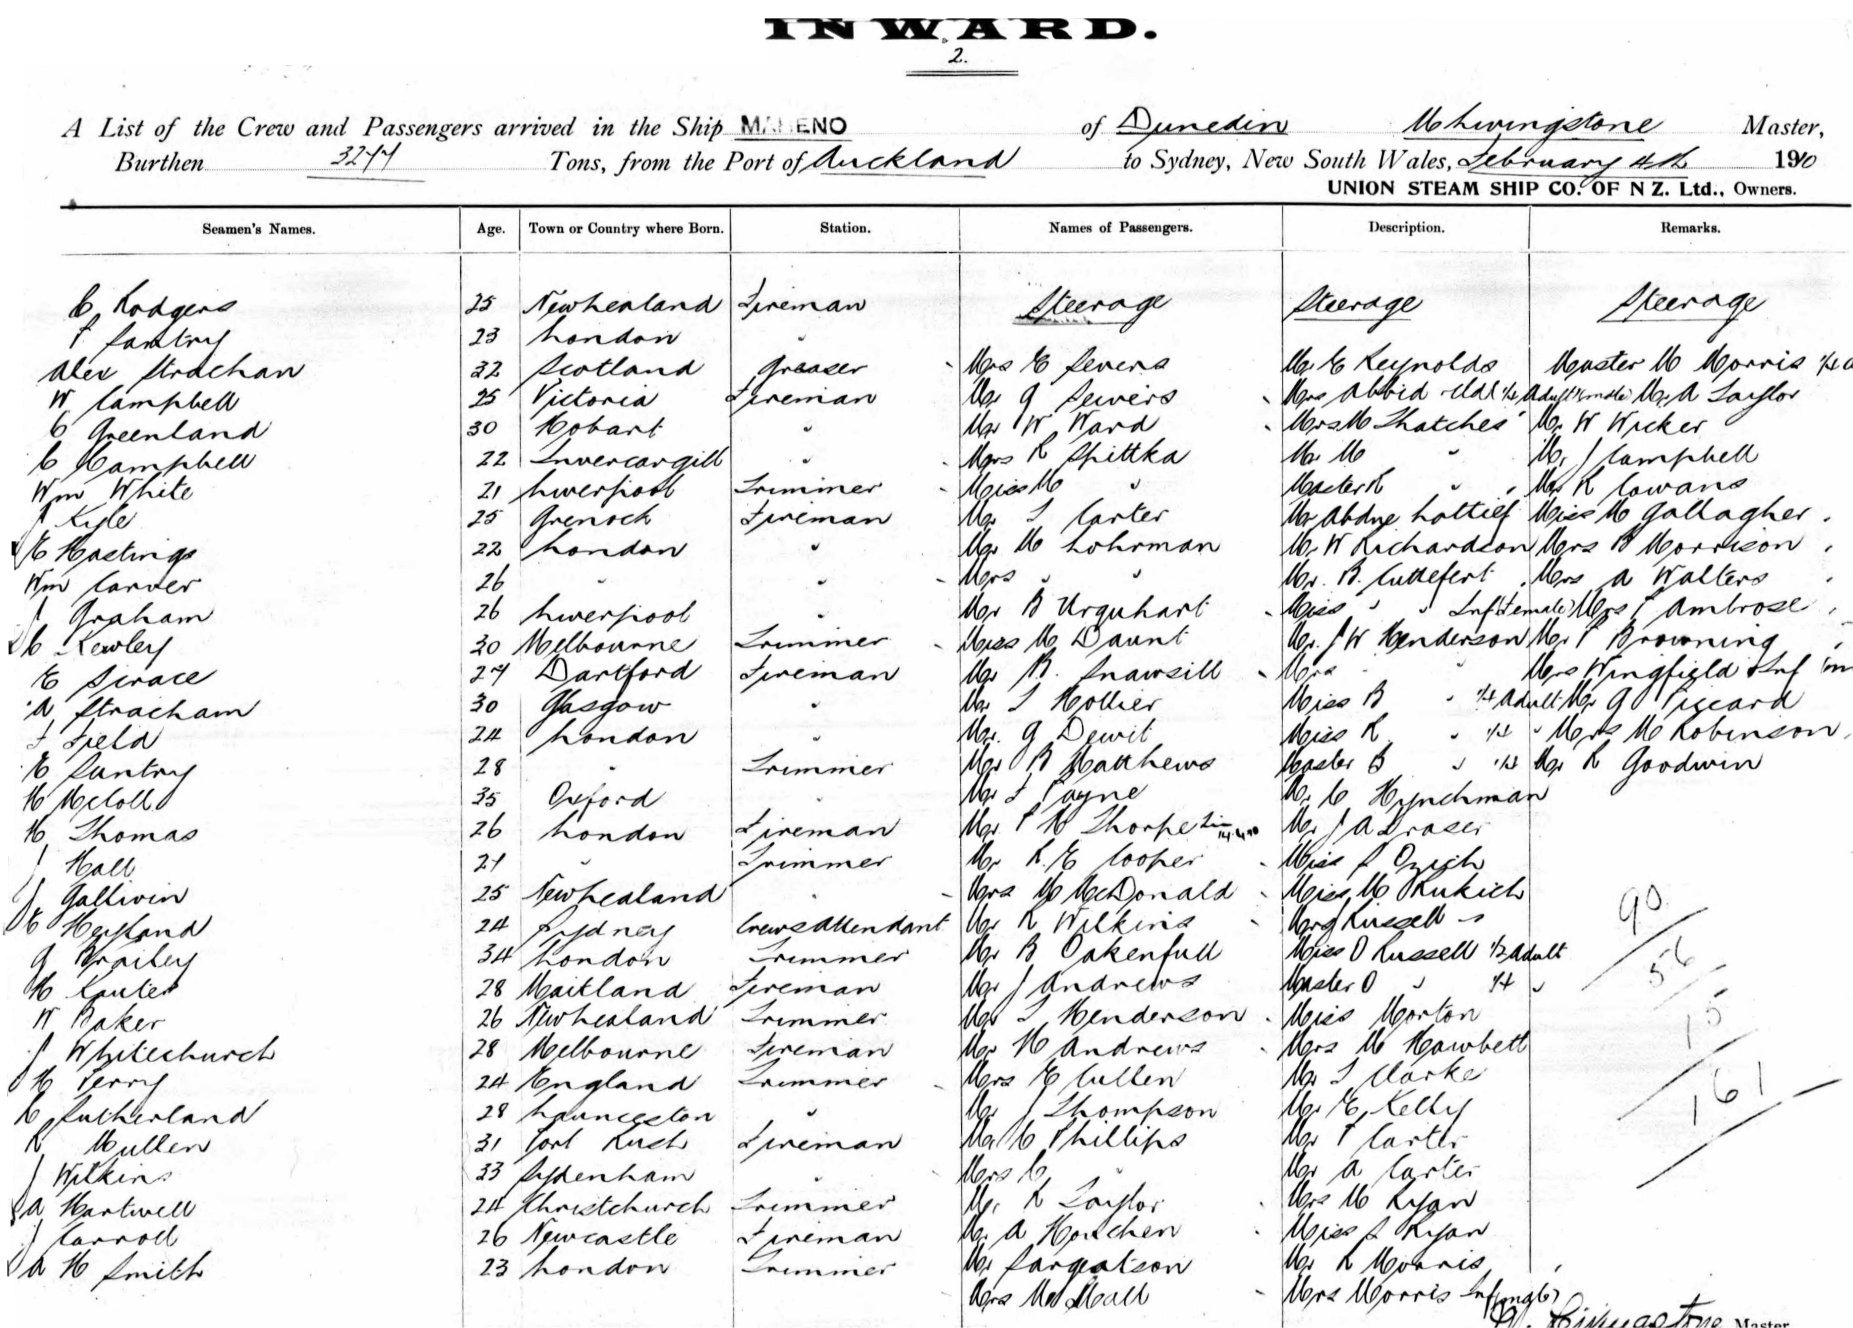 INWARD.
2.
A List of the Crew and Passengers arrived in the Ship MAHENO of Dunedin Livingstone Master,
Burthen 3277 Tons, from the Port of Auckland to Sydney, New South Wales, February 4th 1910
UNION STEAM SHIP CO. OF N Z. Ltd., Owners.
Seamen's Names. Age. Town or Country where Born. Station. Names of Passengers. Description. Remarks.
C Rodgers 25 New Zealand Fireman Steerage Steerage Steerage
P Santry 23 London "
Alex Strachan 32 Scotland Greaser Mrs E Severs Mr E Reynolds Master M Morris
W Campbell 25 Victoria Fireman Mr G Severs Mrs Abbid Mr A Taylor
C Greenland 30 Hobart " Mr W Ward Mrs M Thatches Mr W Wicker
C Campbell 22 Invercargill " Mrs R Spittka Mr M " Mr J Campbell
Wm White 21 Liverpool Trimmer Miss M " Master R " Mr R Cowans
J Kyle 25 Grenock Fireman Mr T Carter Mr Abdne Lottief Miss M Gallagher
E Hastings 22 London " Mr M Lohrman Mr W Richardson Mrs B Morrison
Wm Carver 26 " " Mrs " " Mr. B. Cuttefert Mrs A Walters
J Graham 26 Liverpool " Mr B Urquhart Miss " " Inf Female Mrs T Ambrose
C Kewley 30 Melbourne Trimmer Miss M Daunt Mr. J W Henderson Mr P Browning
E Scrace 27 Dartford Fireman Mr B. Snawsill Mrs " Mrs Wingfield & Inf
A Stracham 30 Glasgow " Mr T Hollier Miss B " ½ Adult Mr G Pigeard
F Field 24 London " Mr. G Dewit Miss R " ½ " Mrs M Robinson
E Santry 28 " Trimmer Mr B Matthews Master B " ½ Mr R Goodwin
H McColl 35 Oxford " Mr F Payne Mr C Hynchman
H Thomas 26 London Fireman Mr P H Thorpe Mr J A Fraser
J Hall 21 " Trimmer Mr R. E Cooper Miss S Ozich
J Gallivin 25 New Zealand " Mrs M McDonald Miss M Rukich
E Heyland 24 Sydney Crews Attendant Mr R Wilkins Mrs J Russell
G Brailey 34 London Trimmer Mr B Oakenfull Miss O Russell ½ Adult
H Kauter 28 Maitland Fireman Mr J Andrews Master O " ½ "
W Baker 26 New Zealand Trimmer Mr T Henderson Miss Morton
J Whitechurch 28 Melbourne Fireman Mr H Andrews Mrs M Hawbett
H Perry 24 England Trimmer Mrs E Cullen Mr T Clarke
R Sutherland 28 Launceston " Mr J Thompson Mr E. Kelly
R Mullen 31 Port Rush Fireman Mr C Phillips Mr P Carter
J Wilkins 33 Sydenham " Mrs C " Mr A Carter
A Hartwell 24 Christchurch Trimmer Mr. R Taylor Mrs M Ryan
J Carroll 26 Newcastle Fireman Mr. A Houchen Miss S Ryan
A H Smith 23 London Trimmer Mr Sargeatson Mr R Morris
Mrs M Hall Mrs Morris
90
56
15
161
Livingstone Master